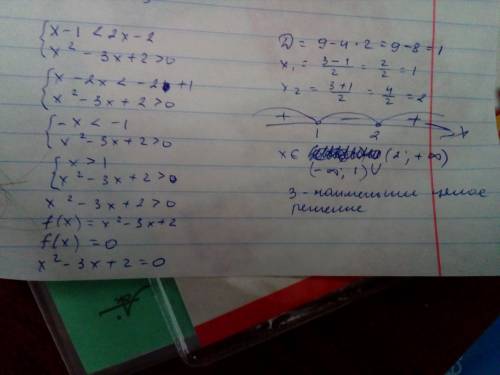 x - 1 < 2x - 2
x² - 3x + 2 > 0
x - 2x < -2 + 1
x² - 3x + 2 > 0
-x < -1
x² - 3x + 2 > 0
x > 1
x² - 3x + 2 > 0
x² - 3x + 2 > 0
f(x) = x² - 3x + 2
f(x) = 0
x² - 3x + 2 = 0
D = 9 - 4 · 2 = 9 - 8 = 1
x₁ = (3 - 1)/2 = 2/2 = 1
x₂ = (3 + 1)/2 = 4/2 = 2
+ - +
1 2 x
x ∈ (2; +∞)
(-∞; 1) ∪
3 - наименьшее целое
решение